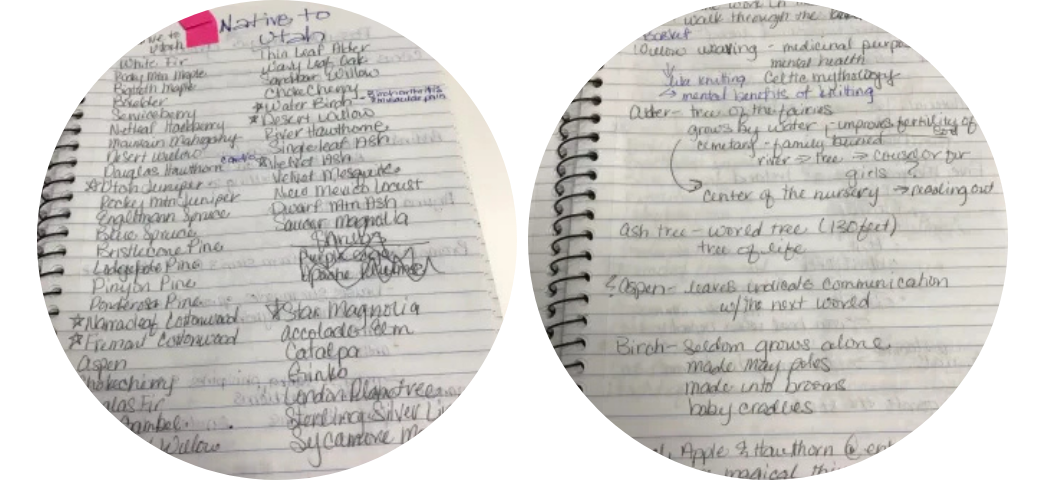 Native to
Utah
White Fir
Rocky Mtn Maple
Bigtooth Maple
Boxelder
Serviceberry
Netleaf Hackberry
Mountain Mahogany
Desert Willow
Douglas Hawthorn
Utah Juniper
Rocky Mtn Juniper
Englemann Spruce
Blue Spruce
Bristlecone Pine
Lodgepole Pine
Pinyon Pine
Ponderosa Pine
Narrowleaf Cottonwood
Fremont Cottonwood
Aspen
Chokecherry
las Fir
Gambel
Willow
Thin Leaf Alder
Wavy Leaf Oak
Sandbar Willow
Choke Cherry
Water Birch
Desert Willow
River Hawthorne
Single leaf Ash
Velvet Ash
Velvet Mesquite
New Mexico Locust
Dwarf Mtn Ash
Saucer Magnolia
Shrubs
Star Magnolia
accolade Elm
Catalpa
Ginko
London Planetree
Sterling Silver Li
Sycamore M
walk through the
Basket
Willow weaving - medicinal purpo
mental health
like knitting Celtic mythology
→ mental benefits of knitting
alder - tree of the fairies
grows by water - improves fertility of soil
cemetary - family buried
river → tree → course or fur
girls
center of the nursery → reading out
ash tree - world tree (130 feet)
tree of life
Aspen - leaves indicate communication
w/ the next world
Birch - seldom grows alone
made may poles
made into brooms
baby cradles
Apple & Hawthorn @ en
magical thi